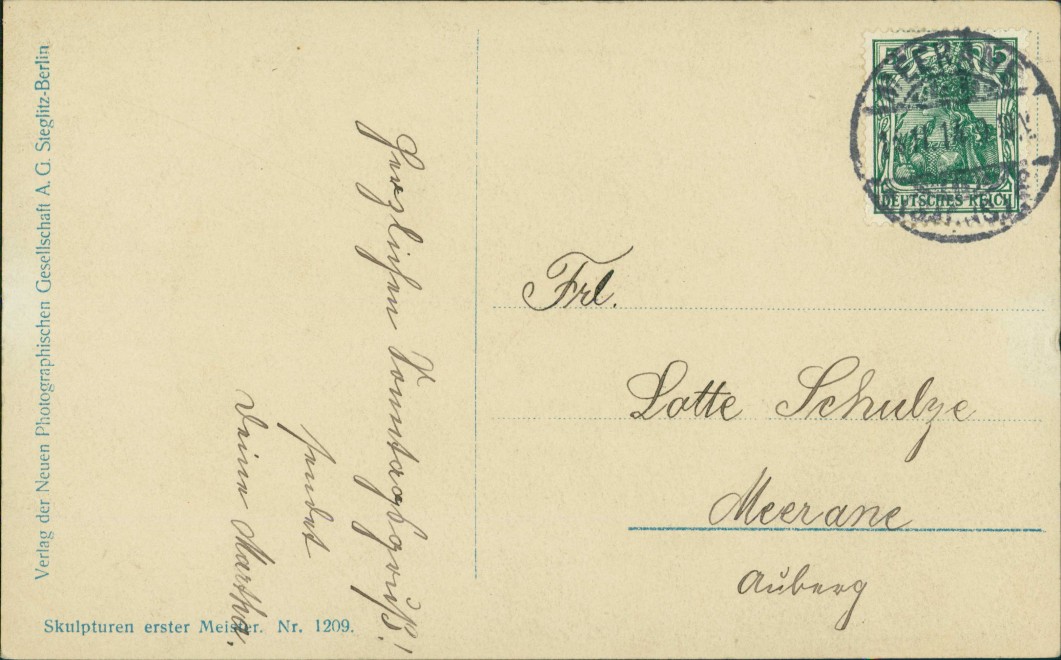 Verlag der Neuen Photographischen Gesellschaft A. G. Steglitz-Berlin
Skulpturen erster Meister. Nr. 1209.
Herzlichen Sonntagsgruß!
sendet
Deine Martha.
MEERANE
DEUTSCHES REICH
Frl.
Lotte Schulze
Meerane
Auberg